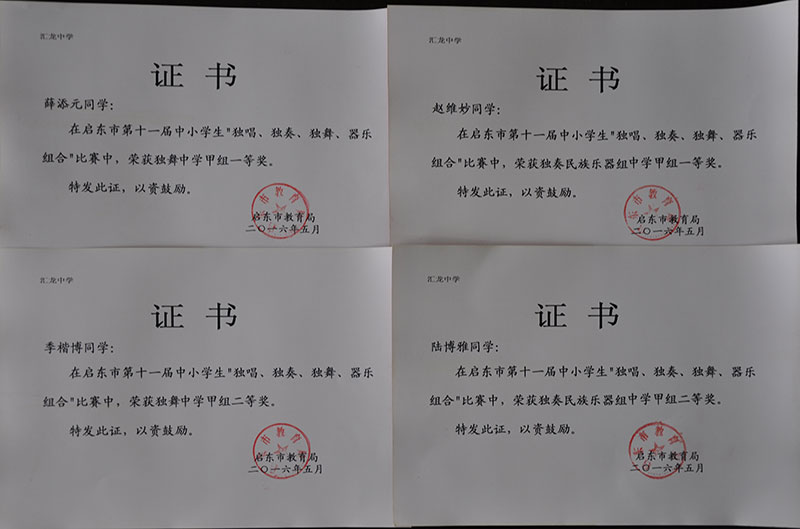 汇龙中学
证书
薛添元同学：
在启东市第十一届中小学生"独唱、独奏、独舞、器乐
组合"比赛中，荣获独舞中学甲组一等奖。
特发此证，以资鼓励。
启东市教育局
二〇一六年五月
汇龙中学
证书
赵维妙同学：
在启东市第十一届中小学生"独唱、独奏、独舞、器乐
组合"比赛中，荣获独奏民族乐器组中学甲组一等奖。
特发此证，以资鼓励。
启东市教育局
二〇一六年五月
汇龙中学
证书
季楷博同学：
在启东市第十一届中小学生"独唱、独奏、独舞、器乐
组合"比赛中，荣获独舞中学甲组二等奖。
特发此证，以资鼓励。
启东市教育局
二〇一六年五月
汇龙中学
证书
陆博雅同学：
在启东市第十一届中小学生"独唱、独奏、独舞、器乐
组合"比赛中，荣获独奏民族乐器组中学甲组二等奖。
特发此证，以资鼓励。
启东市教育局
二〇一六年五月